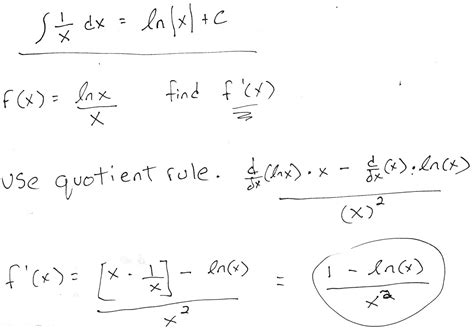 ∫ 1/x dx = ln|x| + C
f(x) = lnx/x find f'(x)
Use quotient rule. (d/dx(lnx) · x − d/dx(x) · ln(x))/(x)²
f'(x) = ([x · 1/x] − ln(x))/x² = (1 − ln(x))/x²